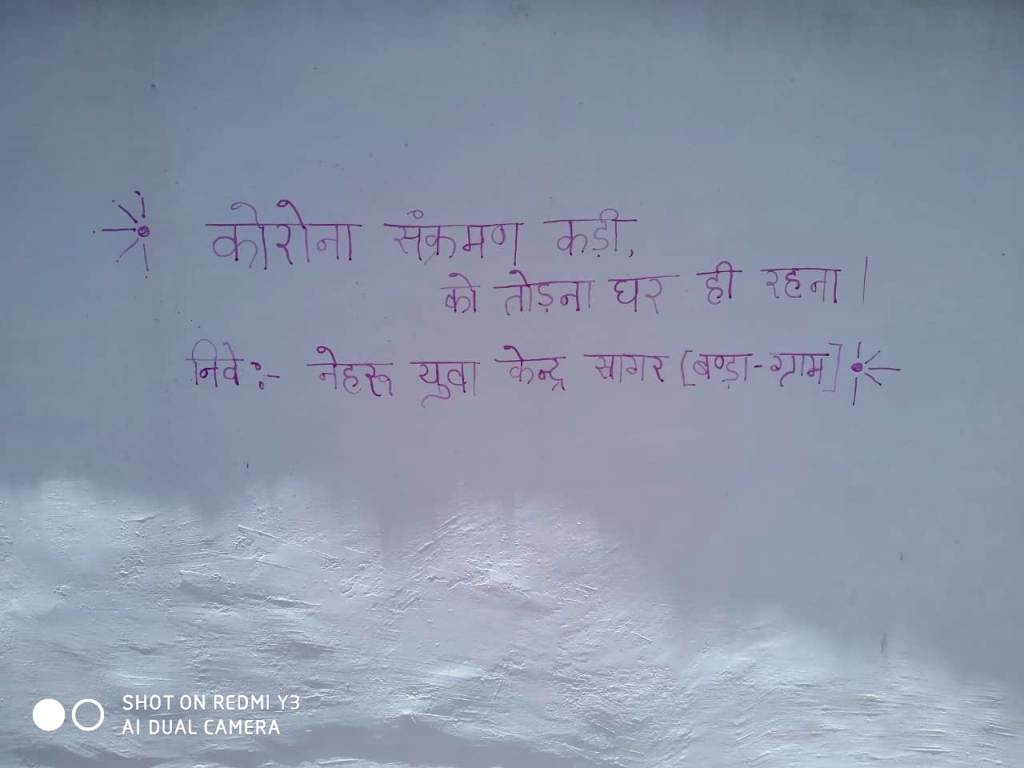 कोरोना संक्रमण कड़ी,
को तोड़ना घर ही रहना।
निवे:- नेहरू युवा केन्द्र सागर [बण्ड़ा-ग्राम]
SHOT ON REDMI Y3
AI DUAL CAMERA